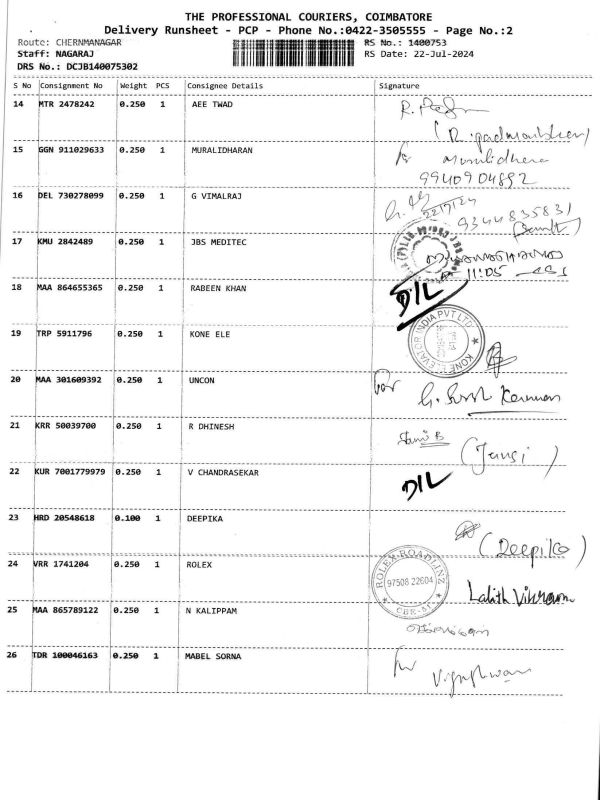 THE PROFESSIONAL COURIERS, COIMBATORE
Delivery Runsheet - PCP - Phone No.:0422-3505555 - Page No.:2
Route: CHERNMANAGAR RS No.: 1400753
Staff: NAGARAJ RS Date: 22-Jul-2024
DRS No.: DCJB140075302
S No Consignment No Weight PCS Consignee Details Signature
14 MTR 2478242 0.250 1 AEE TWAD
15 GGN 911029633 0.250 1 MURALIDHARAN
9940904892
16 DEL 730278099 0.250 1 G VIMALRAJ
22/7/24
9344835831
17 KMU 2842489 0.250 1 JBS MEDITEC
11:05
18 MAA 864655365 0.250 1 RABEEN KHAN D/L
19 TRP 5911796 0.250 1 KONE ELE
KONE ELEVATOR INDIA PVT LTD
20 MAA 301609392 0.250 1 UNCON
For
21 KRR 50039700 0.250 1 R DHINESH
(Jansi)
22 KUR 7001779979 0.250 1 V CHANDRASEKAR D/L
23 HRD 20548618 0.100 1 DEEPIKA
(Deepika)
24 VRR 1741204 0.250 1 ROLEX
ROLEX ROADLINZ
97508 22604
Lalith Vikram
25 MAA 865789122 0.250 1 N KALIPPAM
26 TDR 100046163 0.250 1 MABEL SORNA
For Vigneshwar